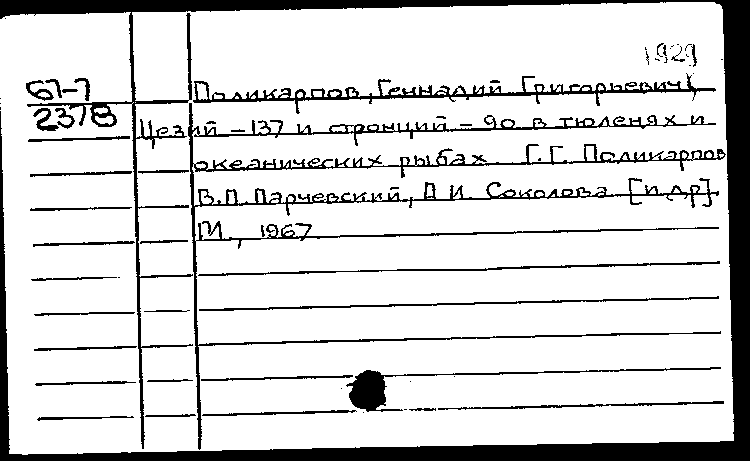 1929
67-7 Поликарпов, Геннадий Григорьевич
2378 Цезий-137 и стронций-90 в тюленях и
океанических рыбах. Г.Г. Поликарпов
В.П. Парчевский, И. Соколова [и др].
М., 1967